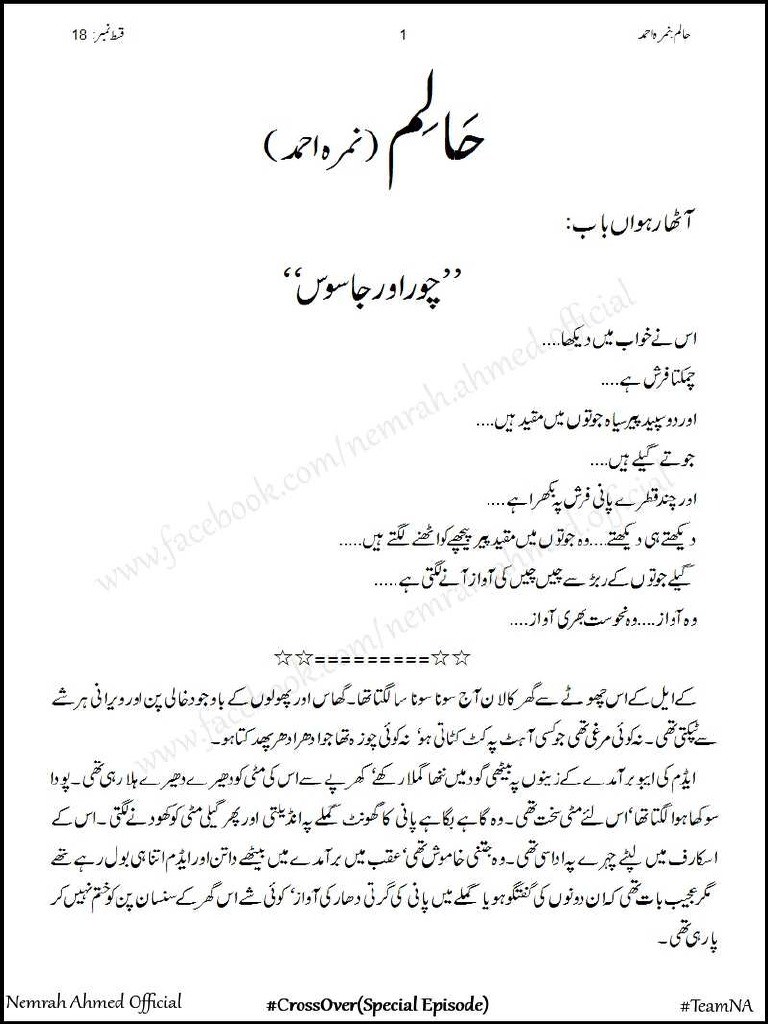 حالم: نمرہ احمد 1 قسط نمبر: 18
حَالِم (نمرہ احمد)
آٹھارہواں باب:
’’چور اور جاسوس‘‘
اس نے خواب میں دیکھا....
چمکتا فرش ہے....
اور دو سپید پیر سیاہ جوتوں میں مقید ہیں....
جوتے گیلے ہیں....
اور چند قطرے پانی فرش پہ بکھرا ہے....
دیکھتے ہی دیکھتے....وہ جوتوں میں مقید پیر پیچھے کو اٹھنے لگتے ہیں.....
گیلے جوتوں کے ربڑ سے چیں چیں کی آواز آنے لگتی ہے.....
وہ آواز....وہ نحوست بھری آواز....
☆☆=========☆☆
کے ایل کے اس چھوٹے سے گھر کا لان آج سونا سونا سا لگتا تھا۔ گھاس اور پھولوں کے باوجود خالی پن اور ویرانی ہر شے
سے ٹپکتی تھی۔ نہ کوئی مرغی تھی جو کسی آہٹ پہ کٹ کٹاتی ہو' نہ کوئی چوزہ تھا جو ادھر ادھر پھدکتا ہو۔
ایڈم کی ایبو برآمدے کے زینوں پہ بیٹھی گود میں ننھا گملا رکھے' کھرپے سے اس کی مٹی کو دھیرے دھیرے ہلا رہی تھی۔ پودا
سوکھا ہوا لگتا تھا' اس لئے مٹی سخت تھی۔ وہ گاہے بگاہے پانی کا گھونٹ گملے پہ انڈیلتی اور پھر گیلی مٹی کو کھودنے لگتی۔ اس کے
اسکارف میں لپٹے چہرے پہ اداسی تھی۔ وہ جتنی خاموش تھی' عقب میں برآمدے میں بیٹھے داتن اور ایڈم اتنا ہی بول رہے تھے
مگر عجیب بات تھی کہ ان دونوں کی گفتگو ہو یا گملے میں پانی کی گرتی دھار کی آواز' کوئی شے اس گھر کے سنسان پن کو ختم نہیں کر
پا رہی تھی۔
www.facebook.com/nemrah.ahmed.official
www.facebook.com/nemrah.ahmed.official
Nemrah Ahmed Official #CrossOver(Special Episode) #TeamNA